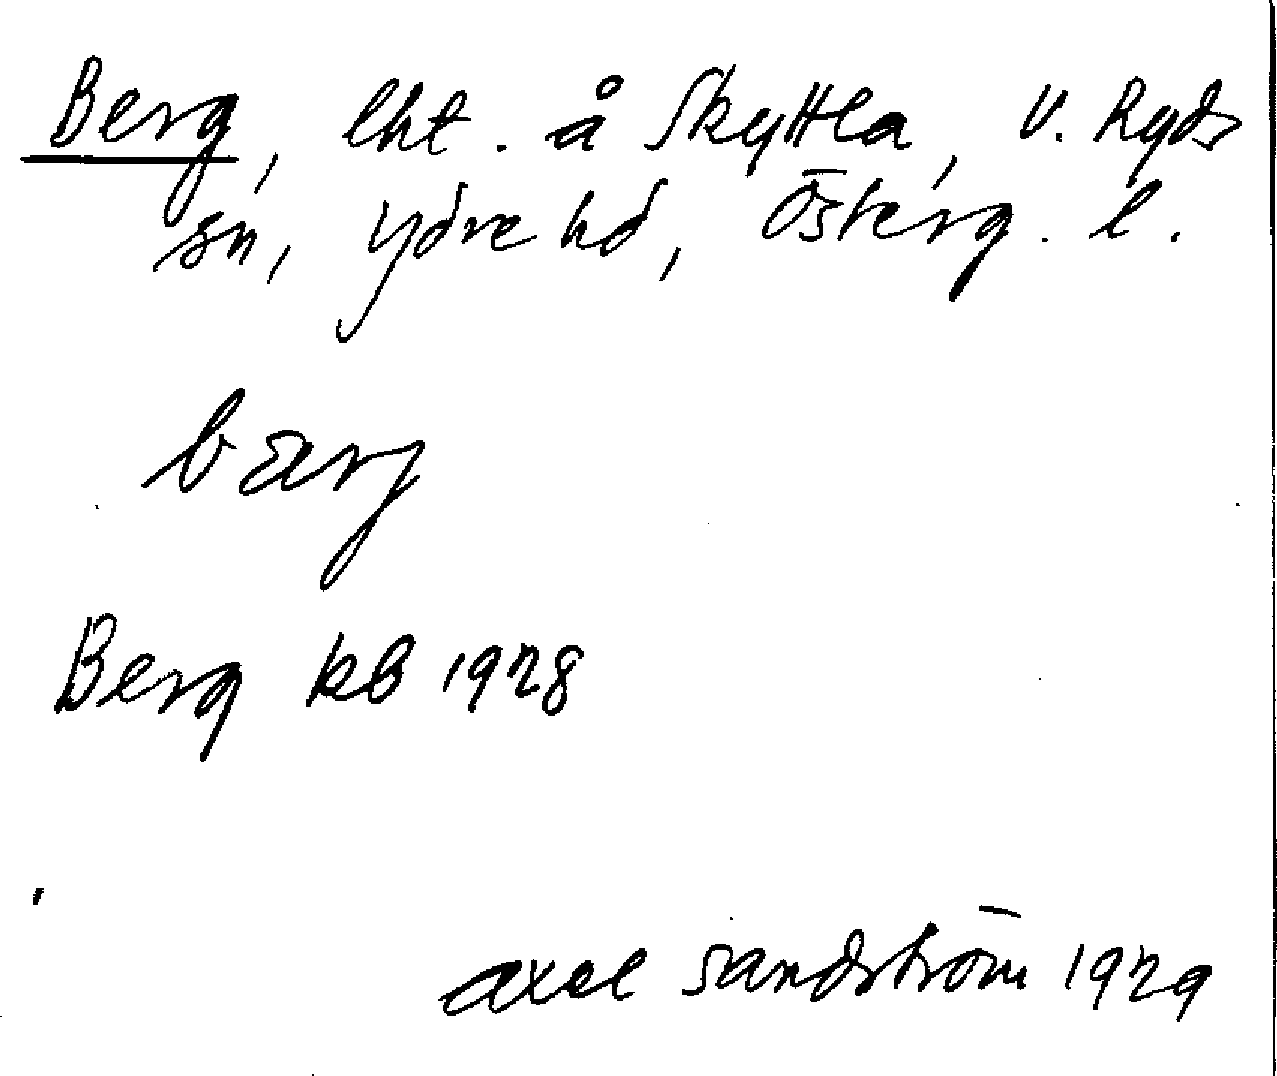 Berg, lht. å Skyttla, V. Ryds
sn, Ydre hd, Österg. l.
bærj
Berg kb 1928
Axel Sandström 1929